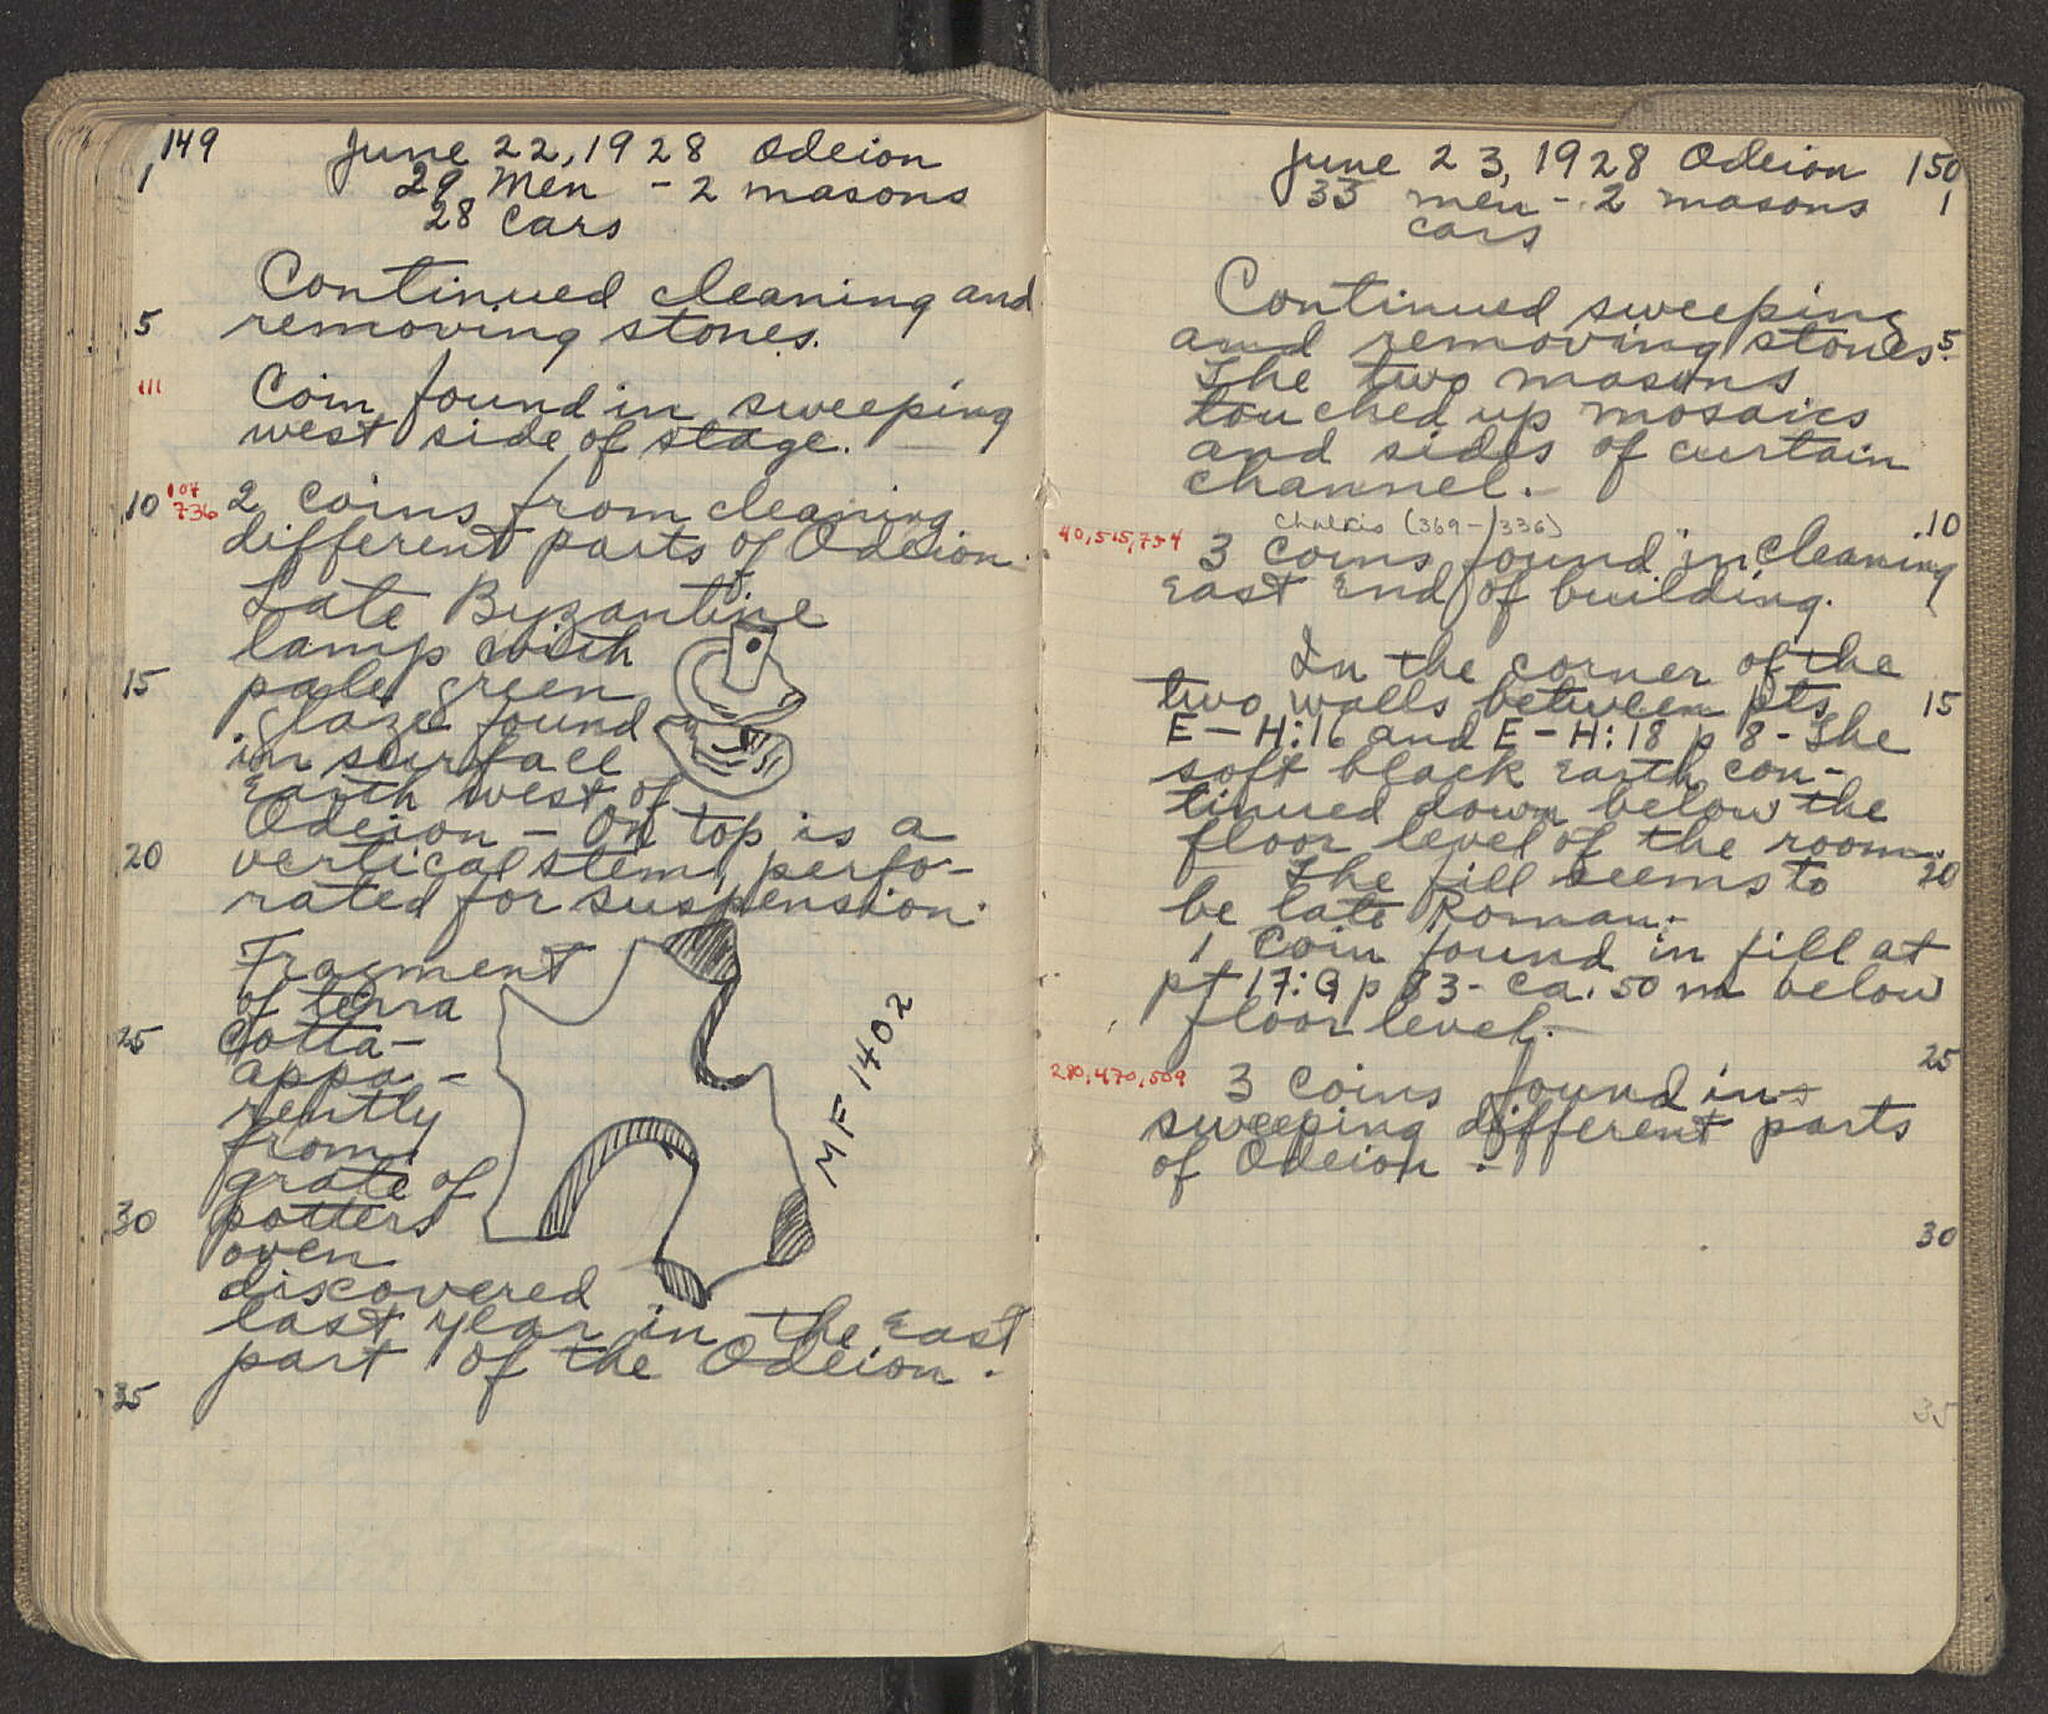 149 June 22, 1928 Odeion
1 29 Men - 2 masons
28 Cars
Continued cleaning and
5 removing stones.
111 Coin found in sweeping
west side of stage.
10 107 736 2 coins from cleaning
different parts of Odeion.
Late Byzantine
lamp with
15 pale green
glaze found
in surface
earth west of
Odeion - On top is a
20 vertical stem, perfo-
rated for suspension.
Fragment
of terra
25 cotta -
appa-
rently
from
grate of
30 potters
oven
discovered
last year in the east
part of the Odeion.
35
MF 1402
June 23, 1928 Odeion 150
33 men - 2 masons 1
cars
Continued sweeping
and removing stones. 5
The two masons
touched up mosaics
and sides of curtain
channel. -
Chalkis (369-336) 10
40, 515, 734 3 coins found in cleaning
east end of building.
In the corner of the
two walls between pts 15
E-H:16 and E-H:18 p 8 - The
soft black earth con-
tinued down below the
floor level of the room.
The fill seems to 20
be late Roman. -
1 Coin found in fill at
pt 17:G p 83 - ca. 50 m below
floor level. -
25
280, 470, 509 3 Coins found in
sweeping different parts
of Odeion -
30
35